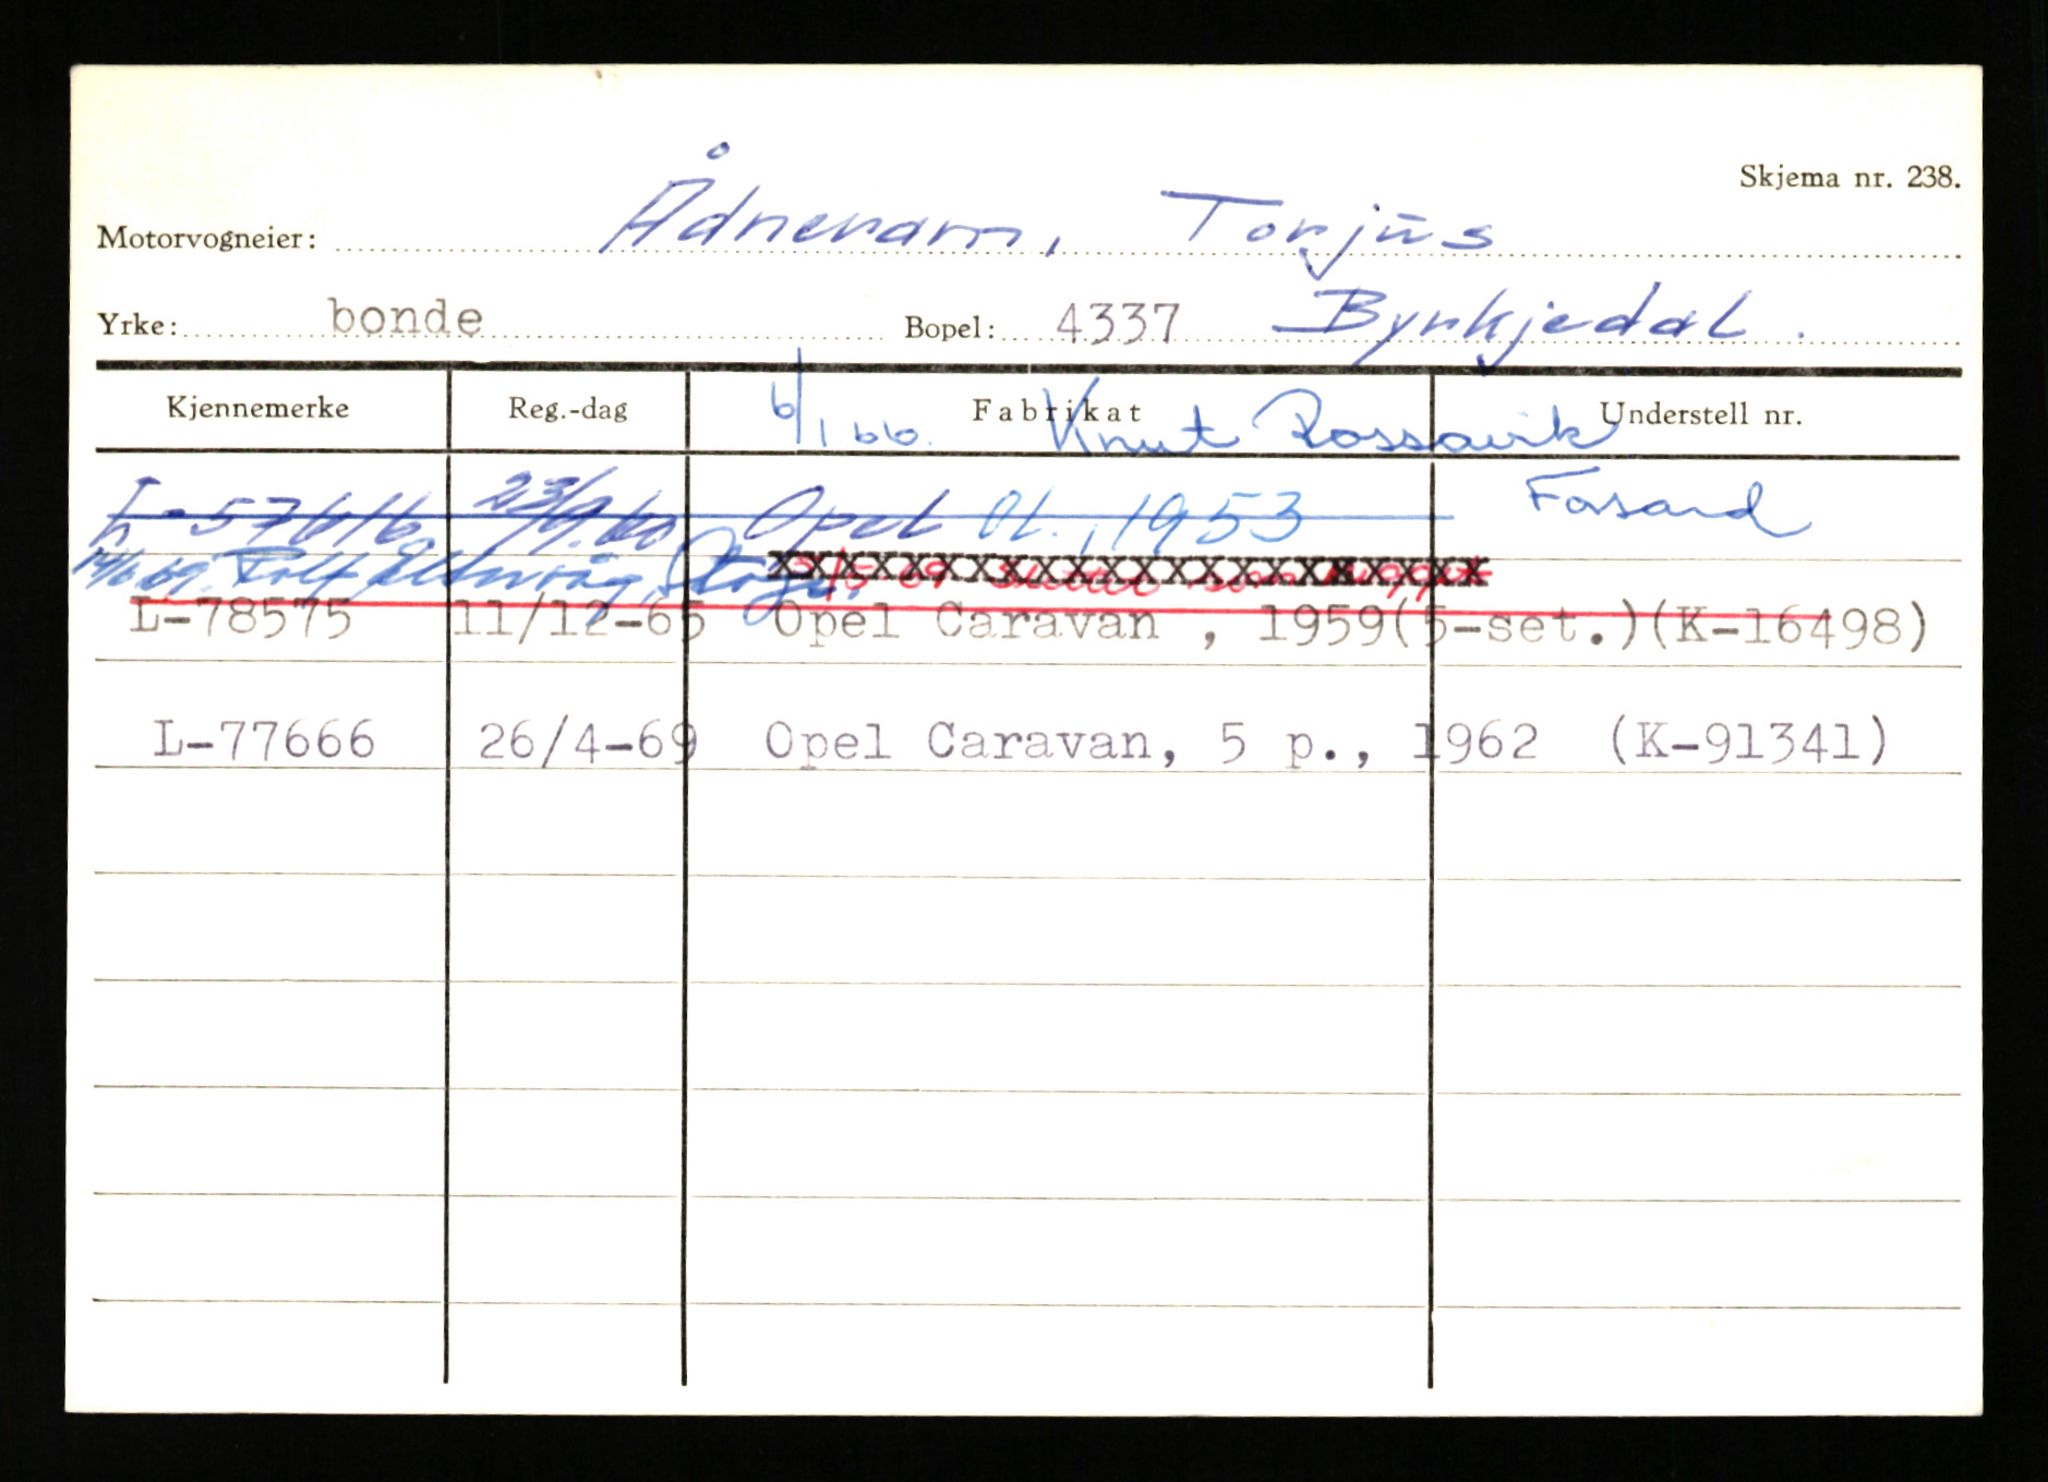 Skjema nr. 238.
Motorvogneier: Ådneram, Torjus
Yrke: bonde Bopel: 4337 Byrkjedal.
Kjennemerke Reg.-dag Fabrikat Understell nr.
6/1 66. Knut Rossavik
Forsand
L-57616 23/9.60 Opel Ol., 1953
14/6.69. Rolf
xxxxxxxxxxxxxxxxxxxxxxx
L-78575 11/12-65 Opel Caravan , 1959(5-set.)(K-16498)
L-77666 26/4-69 Opel Caravan, 5 p., 1962 (K-91341)